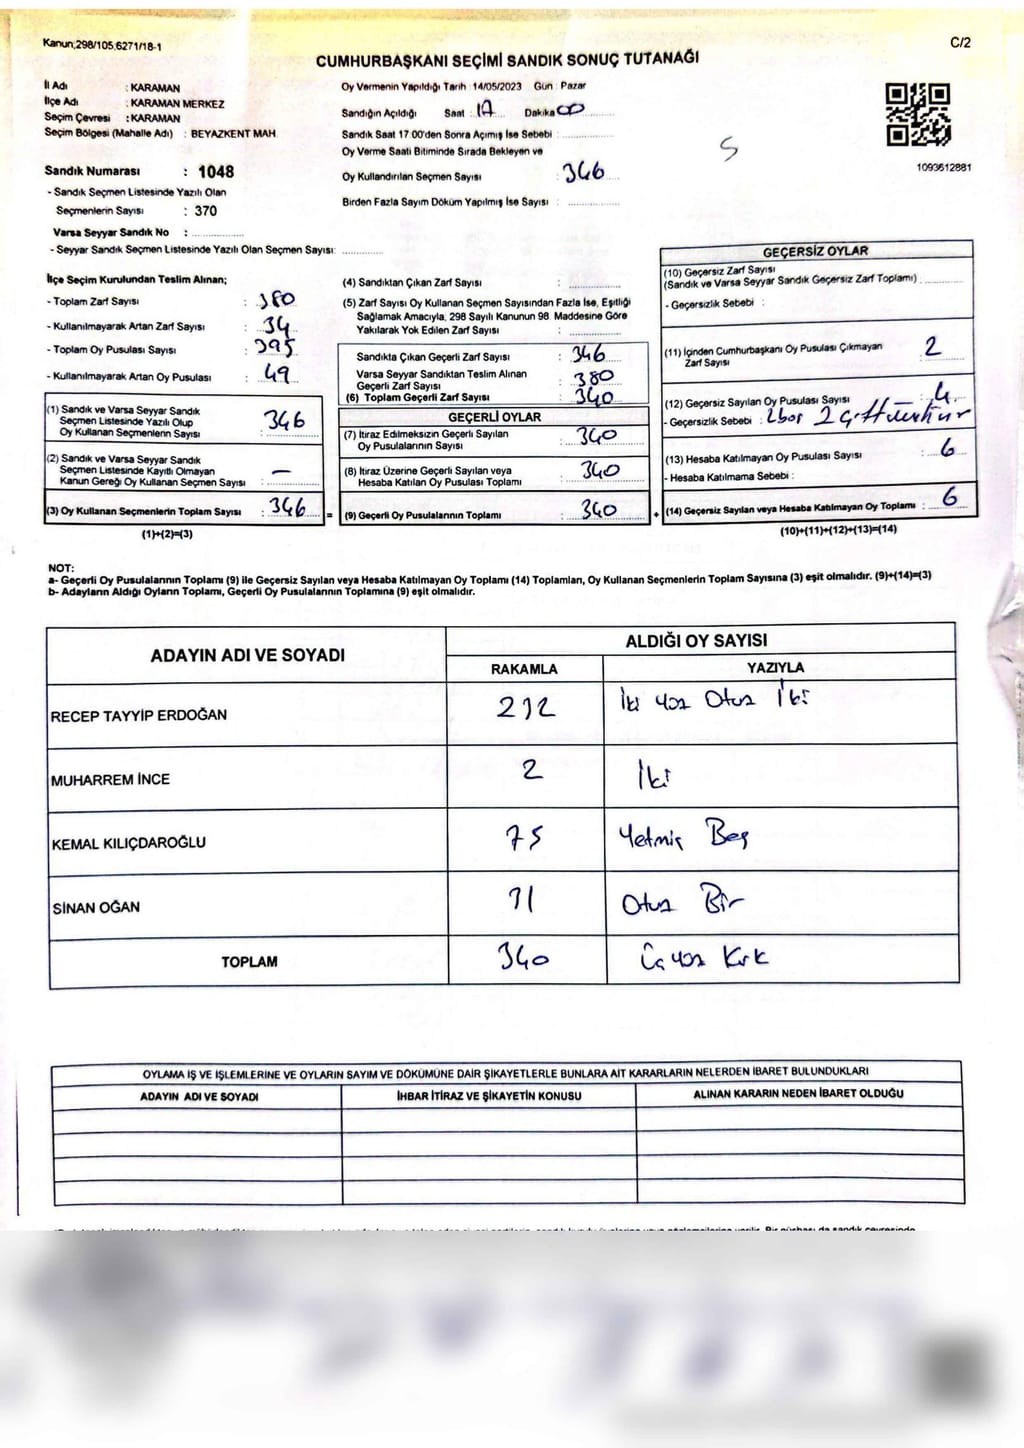 Kanun;298/105,6271/18-1
C/2
CUMHURBAŞKANI SEÇİMİ SANDIK SONUÇ TUTANAĞI
İl Adı : KARAMAN
İlçe Adı : KARAMAN MERKEZ
Seçim Çevresi : KARAMAN
Seçim Bölgesi (Mahalle Adı) : BEYAZKENT MAH.
Oy Vermenin Yapıldığı Tarih : 14/05/2023 Gün : Pazar
Sandığın Açıldığı Saat : 17 Dakika 00
Sandık Saat 17.00'den Sonra Açımış İse Sebebi :
Oy Verme Saati Bitiminde Sırada Bekleyen ve
Oy Kullandırılan Seçmen Sayısı : 346
Birden Fazla Sayım Döküm Yapılmış İse Sayısı :
5
1093612881
Sandık Numarası : 1048
- Sandık Seçmen Listesinde Yazılı Olan
Seçmenlerin Sayısı : 370
Varsa Seyyar Sandık No :
- Seyyar Sandık Seçmen Listesinde Yazılı Olan Seçmen Sayısı:
İlçe Seçim Kurulundan Teslim Alınan;
- Toplam Zarf Sayısı : 380
- Kullanılmayarak Artan Zarf Sayısı : 34
- Toplam Oy Pusulası Sayısı : 395
- Kullanılmayarak Artan Oy Pusulası : 49
(1) Sandık ve Varsa Seyyar Sandık
Seçmen Listesinde Yazılı Olup
Oy Kullanan Seçmenlerin Sayısı : 346
(2) Sandık ve Varsa Seyyar Sandık
Seçmen Listesinde Kayıtlı Olmayan
Kanun Gereği Oy Kullanan Seçmen Sayısı : —
(3) Oy Kullanan Seçmenlerin Toplam Sayısı : 346 =
(1)+(2)=(3)
(4) Sandıktan Çıkan Zarf Sayısı :
(5) Zarf Sayısı Oy Kullanan Seçmen Sayısından Fazla İse, Eşitliği
Sağlamak Amacıyla, 298 Sayılı Kanunun 98. Maddesine Göre
Yakılarak Yok Edilen Zarf Sayısı :
Sandıkta Çıkan Geçerli Zarf Sayısı : 346
Varsa Seyyar Sandıktan Teslim Alınan
Geçerli Zarf Sayısı : 380
(6) Toplam Geçerli Zarf Sayısı : 340
GEÇERLİ OYLAR
(7) İtiraz Edilmeksizin Geçerli Sayılan
Oy Pusulalarının Sayısı : 340
(8) İtiraz Üzerine Geçerli Sayılan veya
Hesaba Katılan Oy Pusulası Toplamı : 340
(9) Geçerli Oy Pusulalarının Toplamı : 340 +
GEÇERSİZ OYLAR
(10) Geçersiz Zarf Sayısı
(Sandık ve Varsa Seyyar Sandık Geçersiz Zarf Toplamı) :
- Geçersizlik Sebebi :
(11) İçinden Cumhurbaşkanı Oy Pusulası Çıkmayan
Zarf Sayısı : 2
(12) Geçersiz Sayılan Oy Pusulası Sayısı : 4
- Geçersizlik Sebebi : 2
(13) Hesaba Katılmayan Oy Pusulası Sayısı : 6
- Hesaba Katılmama Sebebi :
(14) Geçersiz Sayılan veya Hesaba Katılmayan Oy Toplamı : 6
(10)+(11)+(12)+(13)=(14)
NOT:
a- Geçerli Oy Pusulalarının Toplamı (9) ile Geçersiz Sayılan veya Hesaba Katılmayan Oy Toplamı (14) Toplamları, Oy Kullanan Seçmenlerin Toplam Sayısına (3) eşit olmalıdır. (9)+(14)=(3)
b- Adayların Aldığı Oyların Toplamı, Geçerli Oy Pusulalarının Toplamına (9) eşit olmalıdır.
ADAYIN ADI VE SOYADI
ALDIĞI OY SAYISI
RAKAMLA YAZIYLA
RECEP TAYYİP ERDOĞAN 232 İki yüz Otuz İki
MUHARREM İNCE 2 İki
KEMAL KILIÇDAROĞLU 75 Yetmiş Beş
SİNAN OĞAN 31 Otuz Bir
TOPLAM 340 Üç yüz Kırk
OYLAMA İŞ VE İŞLEMLERİNE VE OYLARIN SAYIM VE DÖKÜMÜNE DAİR ŞİKAYETLERLE BUNLARA AİT KARARLARIN NELERDEN İBARET BULUNDUKLARI
ADAYIN ADI VE SOYADI İHBAR İTİRAZ VE ŞİKAYETİN KONUSU ALINAN KARARIN NEDEN İBARET OLDUĞU